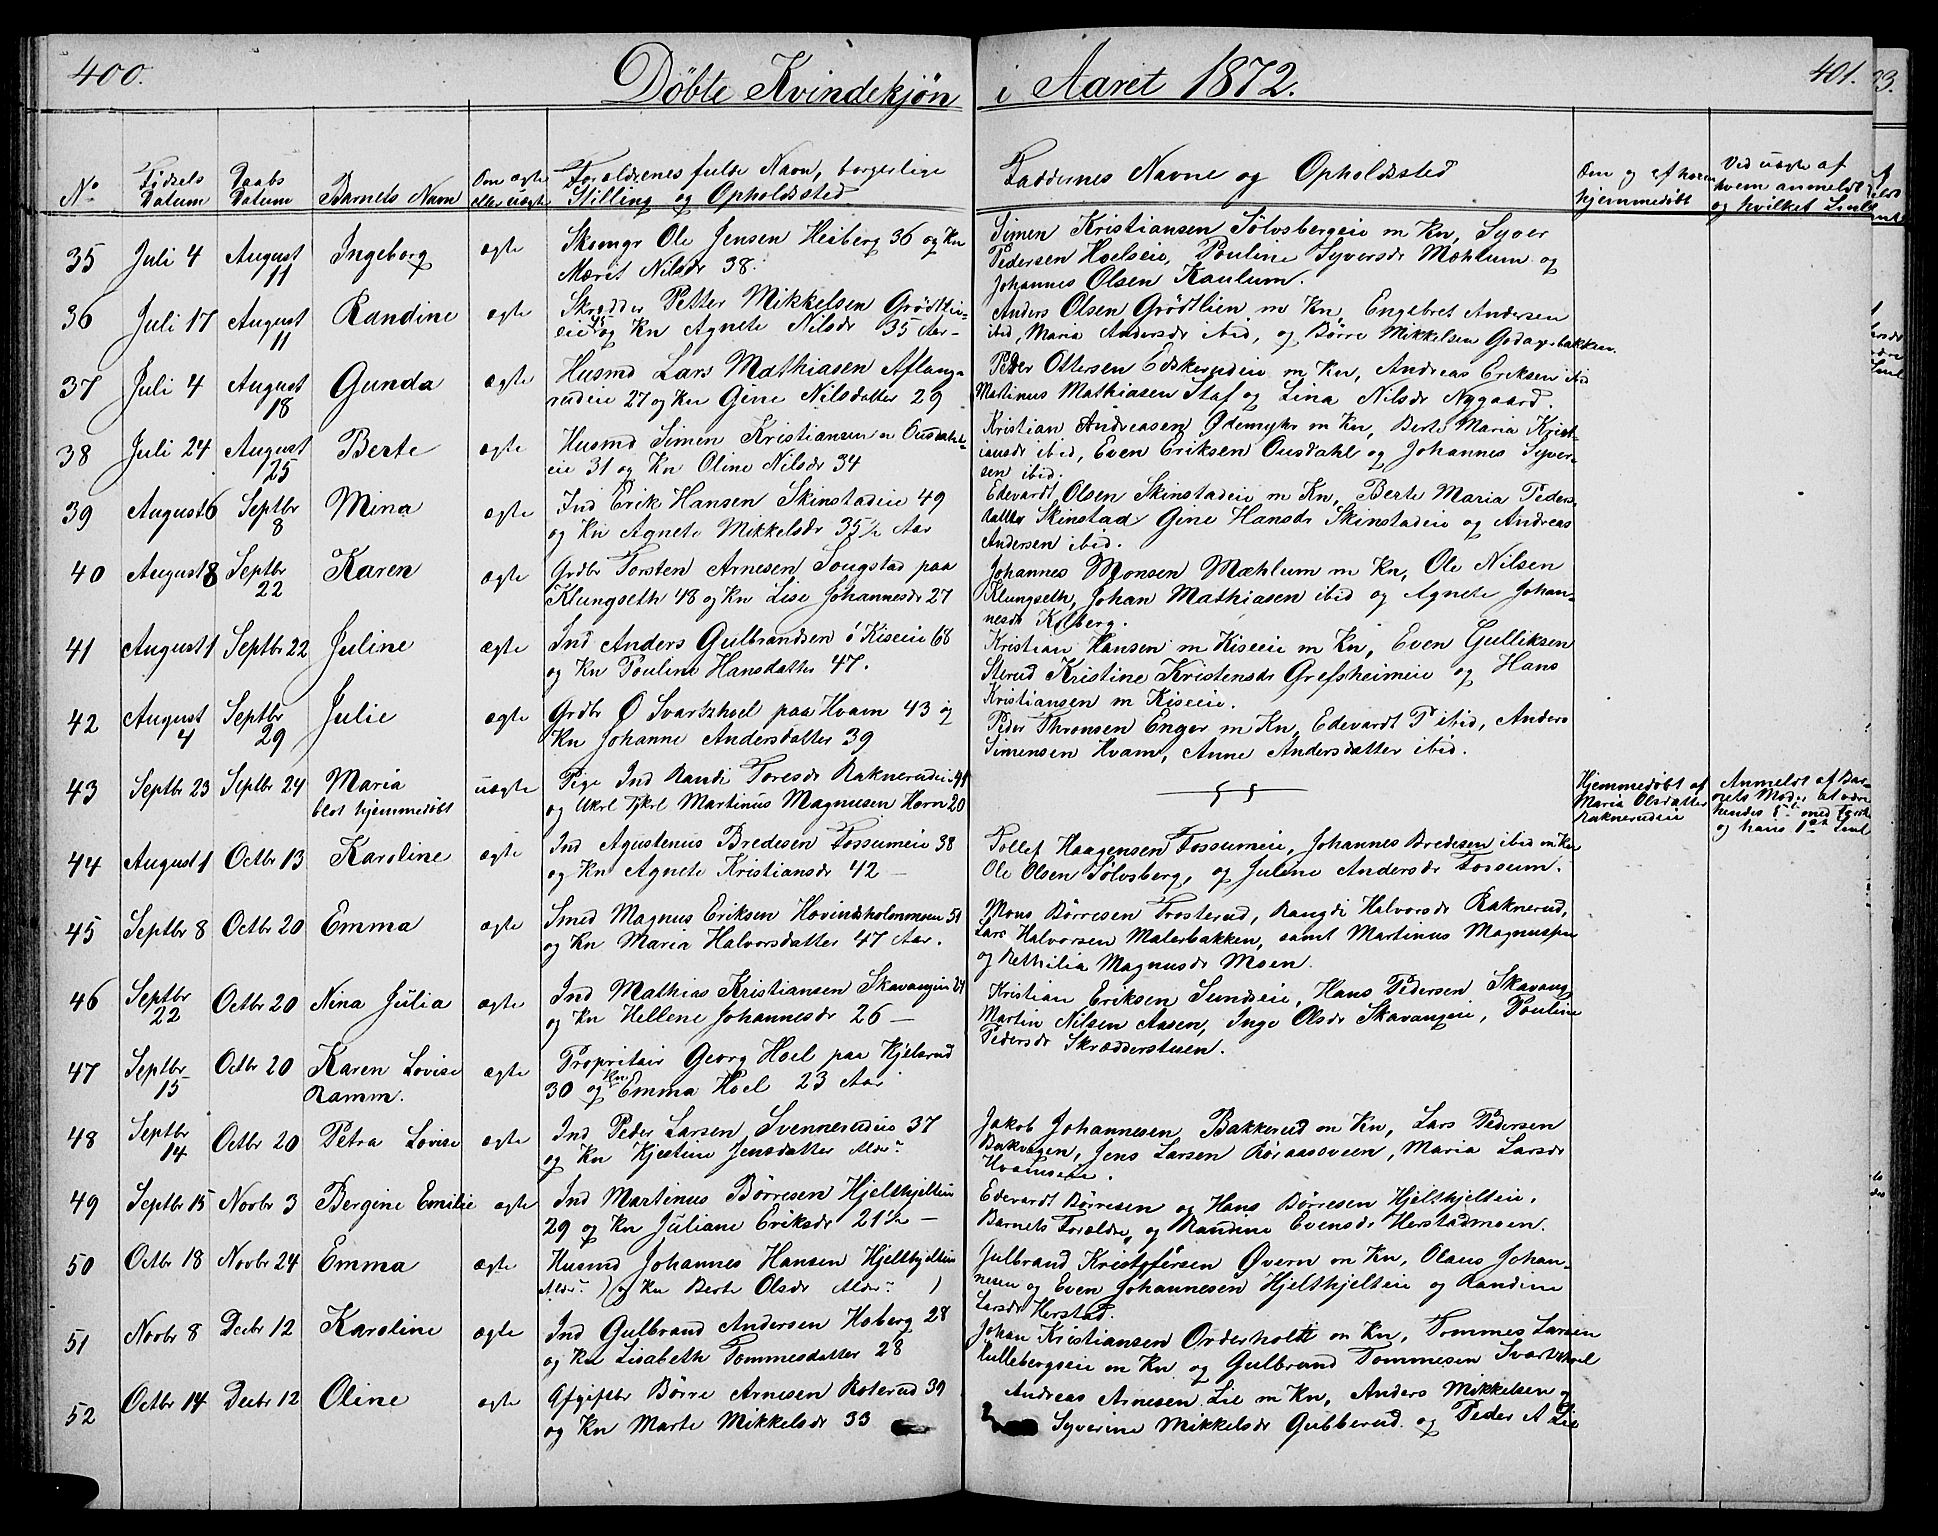 400. Döbte Kvindekjön i Aaret 1872. 401.
No Födsels Datum Daabs Datum Barnets Navn Om ægte eller uægte Forældrenes fulde Navn, borgerlige Stilling og Opholdssted
Faddernes Navne og Opholdssted Om og af hvem hjemmedöbt Ved uægte af hvem anmeldt og hvilket Leierm
35 Juli 4 August 11 Ingeborg ægte Skomgr Ole Jensen Heiberg 36 og Kn
Marit Nilsdr 38.
Simen Kristiansen Sölvsbergeie m Kn, Syver
Pedersen Hoelseie, Pouline Syversdr Mæhlum og
Johannes Olsen Kaulum.
36 Juli 17 August 11 Randine ægte Skrædder Petter Mikkelsen Grödtlien-
eie og Kn Agnete Nilsdr 35 Aar-
Anders Olsen Grödtlien m Kn, Engebret Andersen
ibid, Maria Andersdr ibid, og Börre Mikkelsen Godagsbakken.
37 Juli 4 August 18 Gunda ægte Husmd Lars Mathiasen Aflang-
rudeie 27 og Kn Gine Nilsdatter 29
Peder Ottersen Edskerudeie m Kn, Andreas Eriksen ibid
Martinus Mathiasen Staf og Lina Nilsdr Nygaard.
38 Juli 24 August 25 Berte ægte Husmd Simen Kristiansen Ousdahl-
eie 31 og Kn Oline Nilsdr 34
Kristian Andreasen Ödemyhr m Kn, Berte Maria Krist-
iansdr ibid, Even Eriksen Ousdahl og Johannes Syver-
sen ibid.
39 August 6 Septbr 8 Mina ægte Ind Erik Hansen Skinstadeie 49
og Kn Agnete Mikkelsdr 35½ Aar
Edevardt Olsen Skinstadeie m Kn, Berte Maria Peders-
datter Skinstad Gine Hansdr Skinstadeie og Andreas
Andersen ibid.
40 August 8 Septbr 22 Karen ægte Grdbr Torsten Arnesen Sougstad paa
Klungseth 48 og Kn Lise Johannesdr 27
Johannes Monsen Mæhlum m Kn, Ole Nilsen
Klungseth, Johan Mathiasen ibid og Agnete Johan-
nesdr Kolberg.
41 August 1 Septbr 22 Juline ægte Ind Anders Gulbrandsen ö Kiseie 68
og Kn Pouline Hansdatter 47.
Kristian Hansen m Kiseie m Kn, Even Gulliksen
Sterud Kristine Kristensdr Grefsheimeie og Hans
Kristiansen m Kiseie.
42 August 4 Septbr 29 Julie ægte Grdbr O Svartshoel paa Hvam 43 og
Kn Johanne Andersdatter 39
Peder Thronsen Enger m Kn, Edevardt P ibid, Anders
Simensen Hvam, Anne Andersdatter ibid.
43 Septbr 23 Septbr 24 Maria uægte Pige Ind Randi Toresdr Raknerudeie 44
blot hjemmedöbt og Ukrl Tjkrl Martinus Magnusen Horn 20
Hjemmedöbt af
Maria Olsdatter
Raknerudeie
Anmeldt af Bar-
nets Moder at være
hendes 5te med
og hans 1ste Leierm
44 August 1 Octbr 13 Karoline ægte Ind Agustenus Bredesen Fossumeie 38
og Kn Agnete Kristiansdr 42 —
Tollef Haagensen Fossumeie, Johannes Bredesen ibid m Kn
Ole Olsen Sölvsberg, og Julene Andersdr Fossum.
45 Septbr 8 Octbr 20 Emma ægte Smed Magnus Eriksen Hovindsholmmoen 51
og Kn Maria Halvorsdatter 47 Aar.
Mons Börresen Trosterud, Rangdi Halvorsdr Raknerud,
Lars Halvorsen Malerbakken, samt Martinus Magnussen
og Rethilia Magnusdr Moen.
46 Septbr 22 Octbr 20 Nina Julia ægte Ind Mathias Kristiansen Skavangeie 24
og Kn Hellene Johannesdr 26 —
Kristian Eriksen Sundseie, Hans Pedersen Skavang
Martin Nilsen Aasen, Inge Olsdr Skavangeie, Pouline
Pedersdr Skrædderstuen.
47 Septbr 15 Octbr 20 Karen Lovise ægte Propritair Georg Hoel paa Kjelsrud
Ramm. 30 og Kn Emma Hoel 23 Aar
48 Septbr 14 Octbr 20 Petra Lovise ægte Ind Peder Larsen Svennerudeie 37
og Kn Kjestine Jensdatter Alder "
Jakob Johannesen Bakkerud m Kn, Lars Pedersen
Bakvagen, Jens Larsen Röraasveen, Maria Larsdr
49 Septbr 15 Novbr 3 Bergine Emilie ægte Ind Martinus Börresen Hjelthjelteie
29 og Kn Juliane Eriksdr 21½ —
Edevardt Börresen og Hans Börresen Hjelthjelteie,
Barnets Forældre, og Randine Evensdr Herstadmoen.
50 Octbr 18 Novbr 24 Emma ægte Husmd Johannes Hansen Hjelthjelteie
Alder " ) og Kn Berte Olsdr Alder " )
Gulbrand Kristofersen Övern m Kn, Olaus Johan-
nesen og Even Johannesen Hjelthjelteie og Randine
Larsdr Herstad.
51 Novbr 8 Decbr 12 Karoline ægte Ind Gulbrand Andersen Hoberg 28
og Kn Lisabeth Tommesdatter 28
Johan Kristiansen Orderholdt m Kn, Tommes Larsen
Kullebergseie m Kn og Gulbrand Tommesen Svartshoel
52 Octbr 14 Decbr 12 Oline ægte Afgiftbr Börre Arnesen Roterud 39
og Kn Marte Mikkelsdr 33
Andreas Arnesen Lie m Kn, Anders Mikkelsen og
Syverine Mikkelsdr Gubberud og Peder A Lie